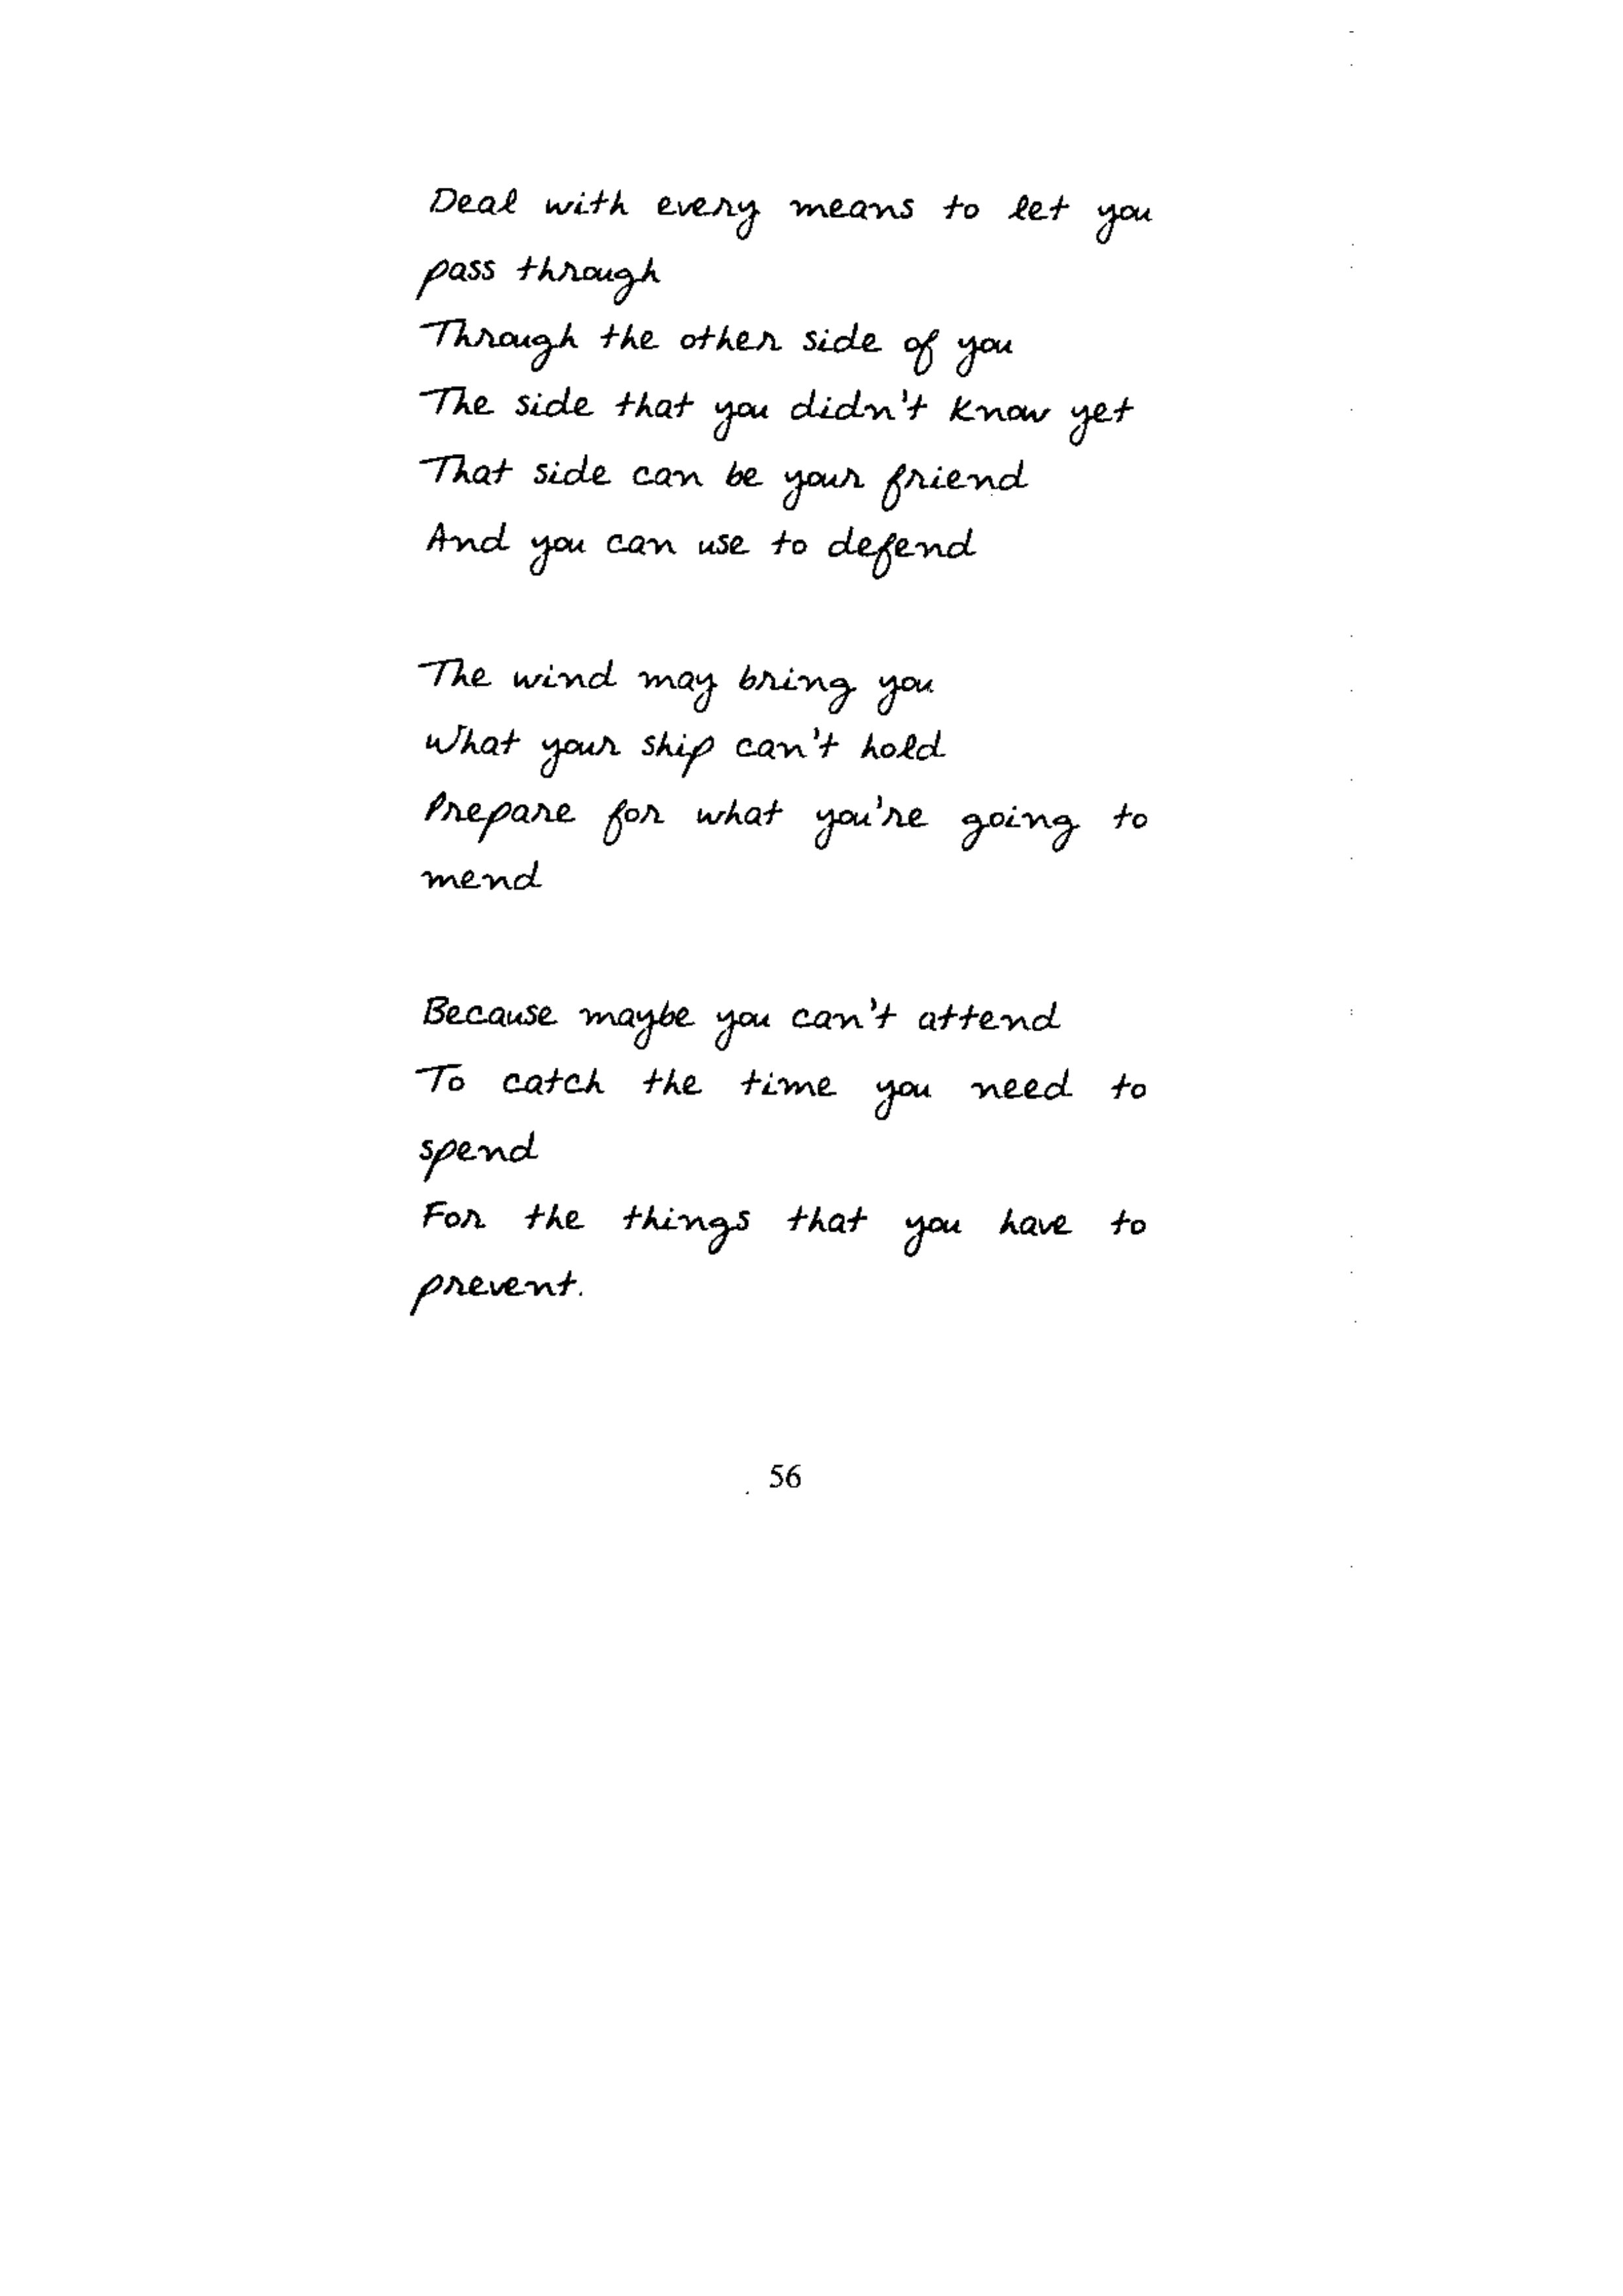 Deal with every means to let you
pass through
Through the other side of you
The side that you didn't know yet
That side can be your friend
And you can use to defend
The wind may bring you
What your ship can't hold
Prepare for what you're going to
mend
Because maybe you can't attend
To catch the time you need to
spend
For the things that you have to
prevent.
56